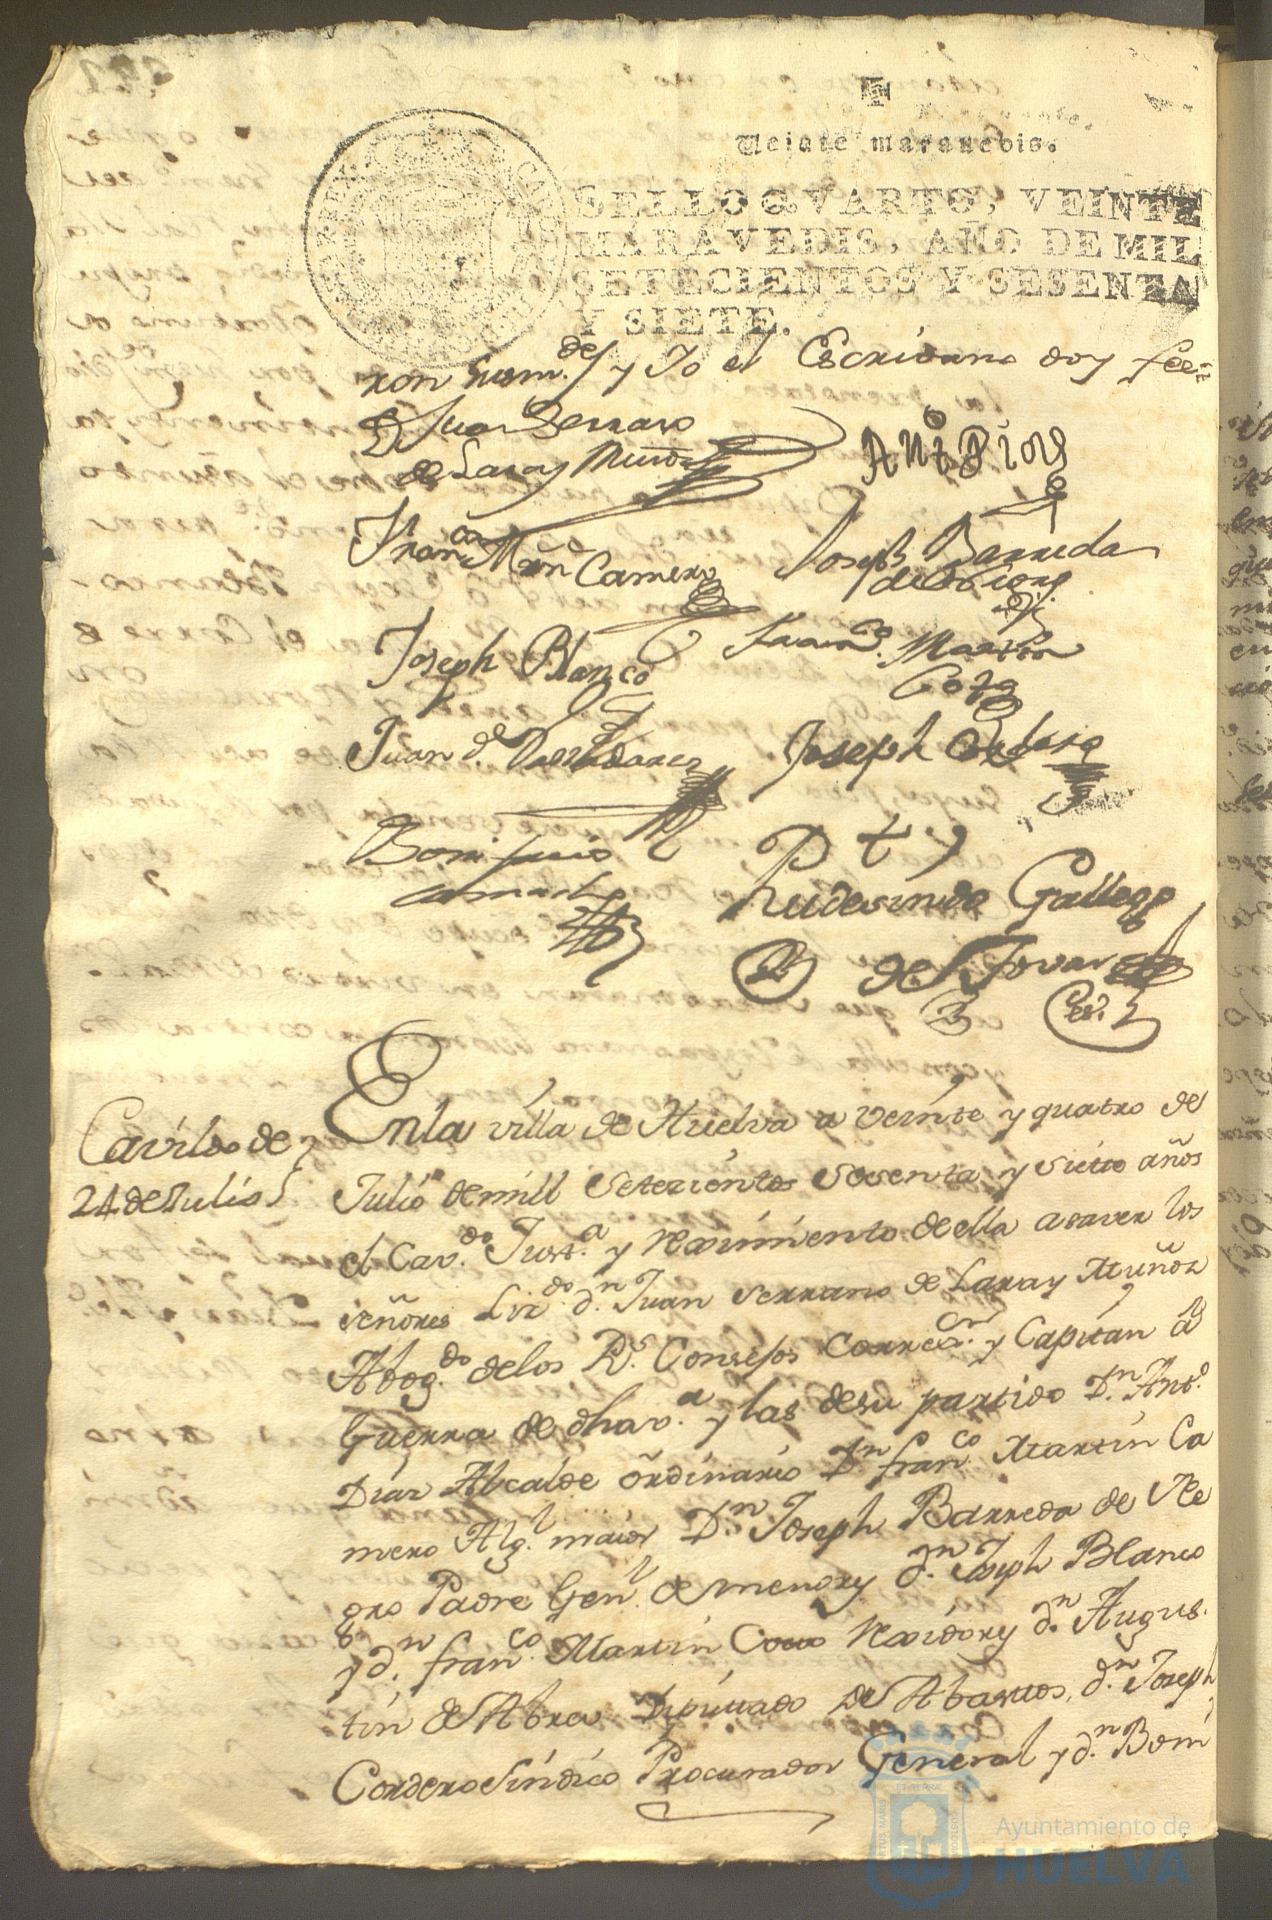 Veinte maravedis.
SELLO QVARTO, VEINTE
MARAVEDIS, AÑO DE MIL
SETECIENTOS Y SESENTA
Y SIETE.
ron sus m.des y Yo el Escrivano doy fee
Juan Serrano
de Lara y Muñoz
Ant Diaz
Fran.co Mrñ Camero
Joseph Barreda
Joseph Blanco
Fran.co Martin
Coto
Juan de Valladares
Joseph Cordero
Bonifacio
Camacho
Rudesindo Gallego
de Tovar
Es.no
Cavildo de
24 de Julio
En la villa de Huelva a veinte y quatro de
Julio de mill setezientos sesenta y siette años
el Cav.do Just.a y reximiento de ella a saver los
señores Liz.do d.n Juan Serrano de Lara y Muñoz
Abog.do de los R.s Consejos Corre.or y Capitan a
Guerra de dha v.a y las de su partido D.n Ant.o
Diaz Alcalde ordinario D.n fran.co Martin Ca
mero Alg.l maior D.n Joseph Barreda de Ne
gro Padre Gen.l de menory d.n Joseph Blanco
y d.n fran.co Martin Coto rexidory d.n Augus.
tin de Abrea Diputtado de Abasttos, d.n Joseph
Cordero Sindico Procurador General y d.n Boni
Ayuntamiento de
HUELVA